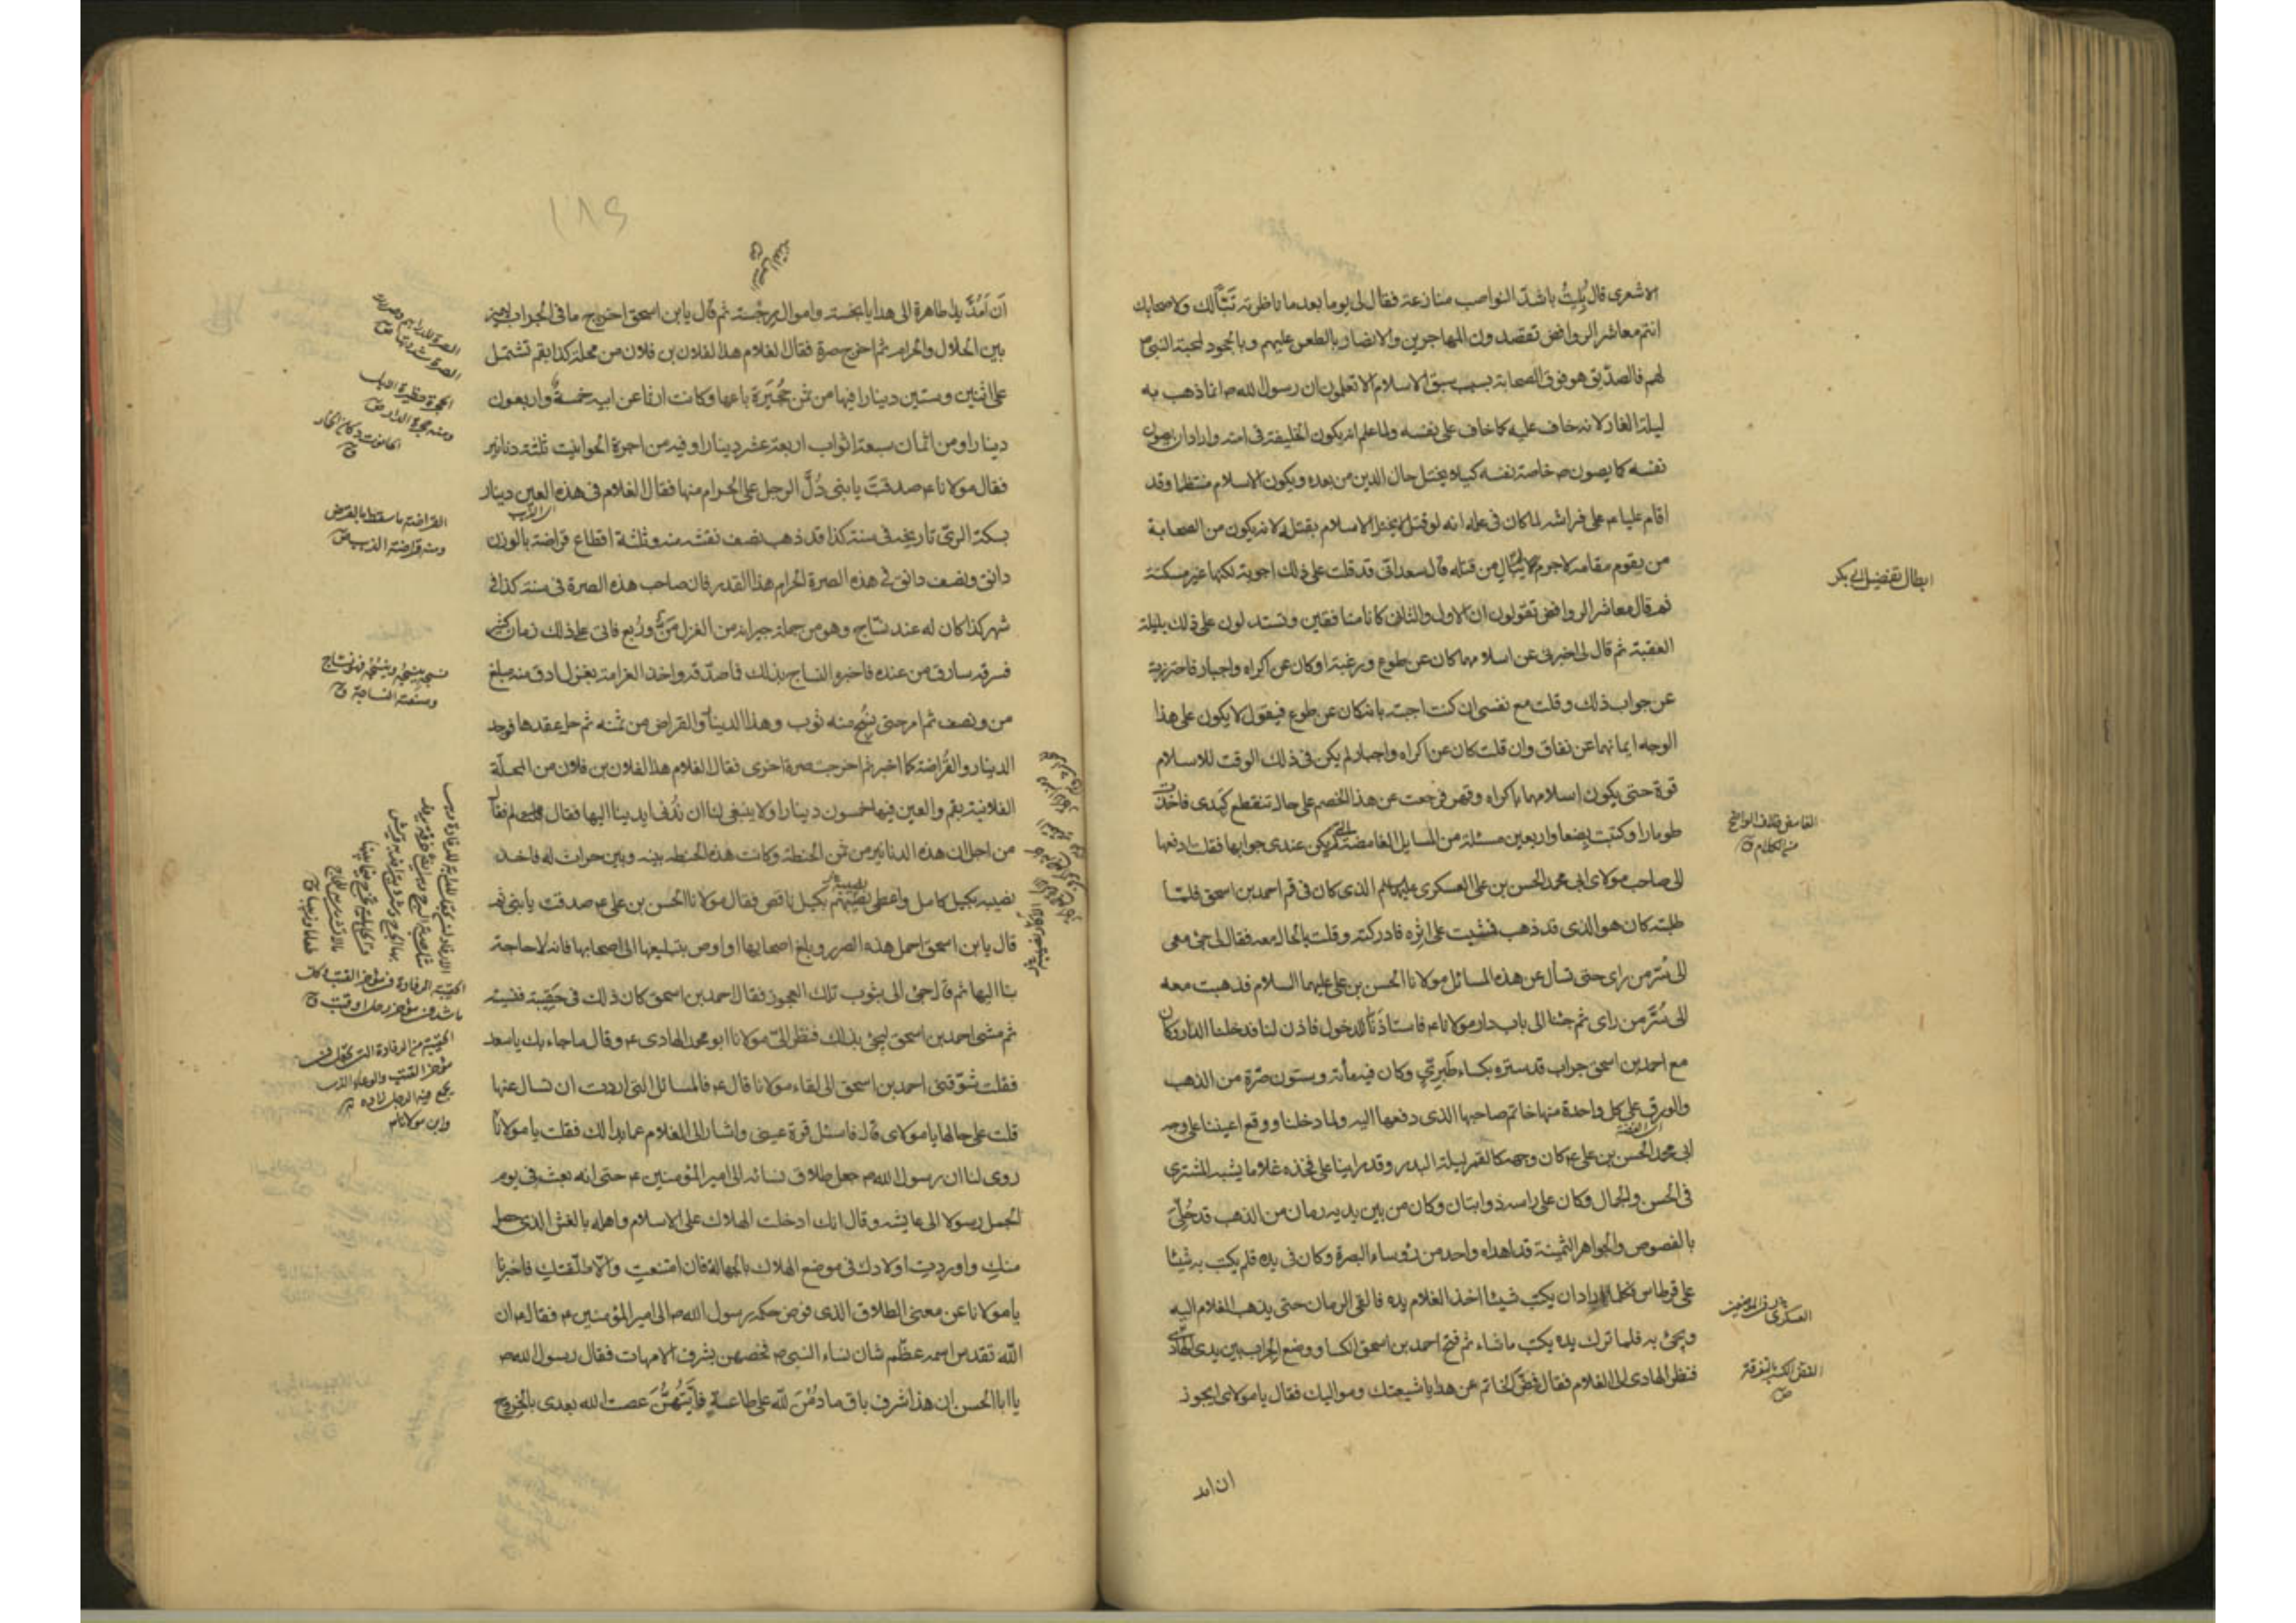 الاشعرى قال بُلِيتُ باشدّ النواصب منازعة فقال لى يوما بعد ما ناظرته تَبًّا لك ولاصحابك
انتم معاشر الروافض تقصدون المهاجرين والانصار بالطعن عليهم وبالجحود لمحبة النبى ص
لهم فالصدّيق هو فوق الصحابة بسبب سبق الاسلام الا تعلمون ان رسول الله ص انما ذهب به
ليلة الغار لانه خاف عليه كما خاف على نفسه ولما علم انه يكون الخليفة فى امته واراد ان يصون
نفسه كما يصون ص خاصة نفسه كيلا يختل حال الدين من بعده ويكون الاسلام منتظما وقد
اقام عليا ع على فراشه لما كان فى علمه انه لو قتل لا يختل الاسلام بقتله لانه يكون من الصحابة
من يقوم مقامه لاجرم لم يبال من قتله قال سعد انى قد قلت على ذلك اجوبة لكنها غير مسكتة
ثم قال معاشر الروافض تقولون ان الاول والثانى كانا منافقين وتستدلون على ذلك بليلة
العقبة ثم قال لى اخبرنى عن اسلامهما كان عن طوع ورغبة او كان عن اكراه واجبار فاحترزت
عن جواب ذلك وقلت مع نفسى ان كنت اجبته بانه كان عن طوع فيقول لا يكون على هذا
الوجه ايمانهما عن نفاق وان قلت كان عن اكراه واجبار لم يكن فى ذلك الوقت للاسلام
قوة حتى يكون اسلامهما باكراه وقهر فرجعت عن هذا الخصم على حال تنقطع كبدى فاخذت
طومارا وكتبت بضعا واربعين مسئلة من المسايل الغامضة التى لم يكن عندى جوابها فقلت ادفعها
الى صاحب مولاى ابى محمد الحسن بن على العسكرى عليهما السلم الذى كان فى قم احمد بن اسحق فلما
طلبته كان هو الذى قد ذهب فمشيت على اثره فادركته وقلت بالحال معه فقال لى جئ معى
الى سُرّ من راى حتى نسأل عن هذه المسائل مولانا الحسن بن على عليهما السلام فذهبت معه
الى سُرَّ من راى ثم جئنا الى باب دار مولانا ع فاستاذنّا للدخول فاذن لنا فدخلنا الدار وكان
مع احمد بن اسحق جراب قد ستره بكساء طَبَرِىّ وكان فيه مأئة وستون صُرّة من الذهب
والورق على كل واحدة منها خاتم صاحبها الذى دفعها اليه ولما دخلنا ووقع اعيننا على وجه
ابى محمد الحسن بن على ع كان وجهه كالقمر ليلة البدر وقد راينا على فخذه غلاما يشبه المشترى
فى الحسن والجمال وكان على راسه ذوابتان وكان من بين يديه رمان من الذهب قد حُلِّىَ
بالفصوص والجواهر الثمينة قد اهداه واحد من رؤساء البصرة وكان فى يده قلم يكتب به شيئا
على قرطاس فكلما اراد ان يكتب شيئا اخذ الغلام يده فالقى الرمان حتى يذهب الغلام اليه
ويجئ به فلما ترك يده يكتب ما شاء ثم فتح احمد بن اسحق الكسا ووضع الجراب بين يدى الهادى
فنظر الهادى الى الغلام فقال فُضّ الخاتم عن هدايا شيعتك ومواليك فقال يا مولاى ايجوز
ان امد
ابطال تفضيل ابى بكر
الغامض خلاف الواضح
من الكلام ق
الفض الكسر بالتفرقة
ص
١٨٤
أن اَمُدَّ يدا طاهرة الى هدايا نجسة واموال رجسة ثم قال يا بن اسحق اخرج ما فى الجراب لاميز
بين الحلال والحرام ثم اخرج صرة فقال الغلام هذا لفلان بن فلان من محلة كذا بقم تشتمل
على اثنين وستين دينارا فيها من ثمن حُجَيرَة باعها وكانت ارثا عن ابيه خمسة واربعون
دينارا ومن اثمان سبعة اثواب اربعة عشر دينارا وفيه من اجرة الحوانيت ثلثة دنانير
فقال مولانا ع صدقت يا بنى دُلَّ الرجل على الحرام منها فقال الغلام فى هذه العين دينار
بسكة الرىّ تاريخه فى سنة كذا قد ذهب نصف نقشه منه وثلثة اقطاع قراضة بالوزن
دانق ونصف دانق فى هذه الصرة الحرام هذا القدر فان صاحب هذه الصرة فى سنة كذا فى
شهر كذا كان له عند نسّاج وهو من جملة جيرانه من الغزل مَنٌّ ورُبع فاتى على ذلك زمان كثير
فسرقه سارق من عنده فاخبره النساج بذلك فما صدّقه واخذ الغرامة بغزل ادق منه مبلغ
من ونصف ثم امر حتى نُسِج منه ثوب وهذا الدينار والقراض من ثمنه ثم حل عقدها فوجد
الدينار والقُراضة كما اخبر ثم اخرجت صرة اخرى فقال الغلام هذا لفلان بن فلان من المحلّة
الفلانية بقم والعين فيها خمسون دينارا ولا ينبغى لنا ان نُدنى ايدينا اليها فقال لم فقال
من اجل ان هذه الدنانير من ثمن الحنطة وكانت هذه الحنطة بينه وبين حراث له فاخذ
نصيبه بكيل كامل واعطى نصيبهم بكيل ناقص فقال مولانا الحسن بن على ع صدقت يا بنى ثم
قال يا بن اسحق احمل هذه الصرر وبلغ اصحابها او اوص بتبليغها الى اصحابها فانه لا حاجة
بنا اليها ثم قال جئ الى بثوب تلك العجوز فقال احمد بن اسحق كان ذلك فى حَقِيبة فنسيته
ثم مشى احمد بن اسحق ليجئ بذلك فنظر الىّ مولانا ابو محمد الهادى ع وقال ما جاء بك يا سعد
فقلت شوّقنى احمد بن اسحق الى لقاء مولانا قال ع فالمسائل التى اردت ان تسال عنها
قلت على حالها يا مولاى قال فاسئل قرة عينى واشار الى الغلام عما بدا لك فقلت يا مولانا
روى لنا ان رسول الله ص جعل طلاق نسائه الى امير المؤمنين ع حتى انه بعث فى يوم
الجمل رسولا الى عايشه وقال انك ادخلت الهلاك على الاسلام واهله بالغش الذى حصل
منكِ واوردتِ اولادك فى موضع الهلاك بالجهالة فان امتنعتِ والا طلّقتكِ فاخبرنا
يا مولانا عن معنى الطلاق الذى فوض حكمه رسول الله ص الى امير المؤمنين ع فقال ع ان
الله تقدس اسمه عظّم شان نساء النبى ص فخصهن بشرف الامهات فقال رسول الله ص
يا ابا الحسن ان هذا شرف باق ما دُمْنَ لله على طاعةٍ فاَيَّتُهُنَّ عصت الله بعدى بالخروج
القراضة ما سقط بالقرض
ومنه قراضة الذهب ص